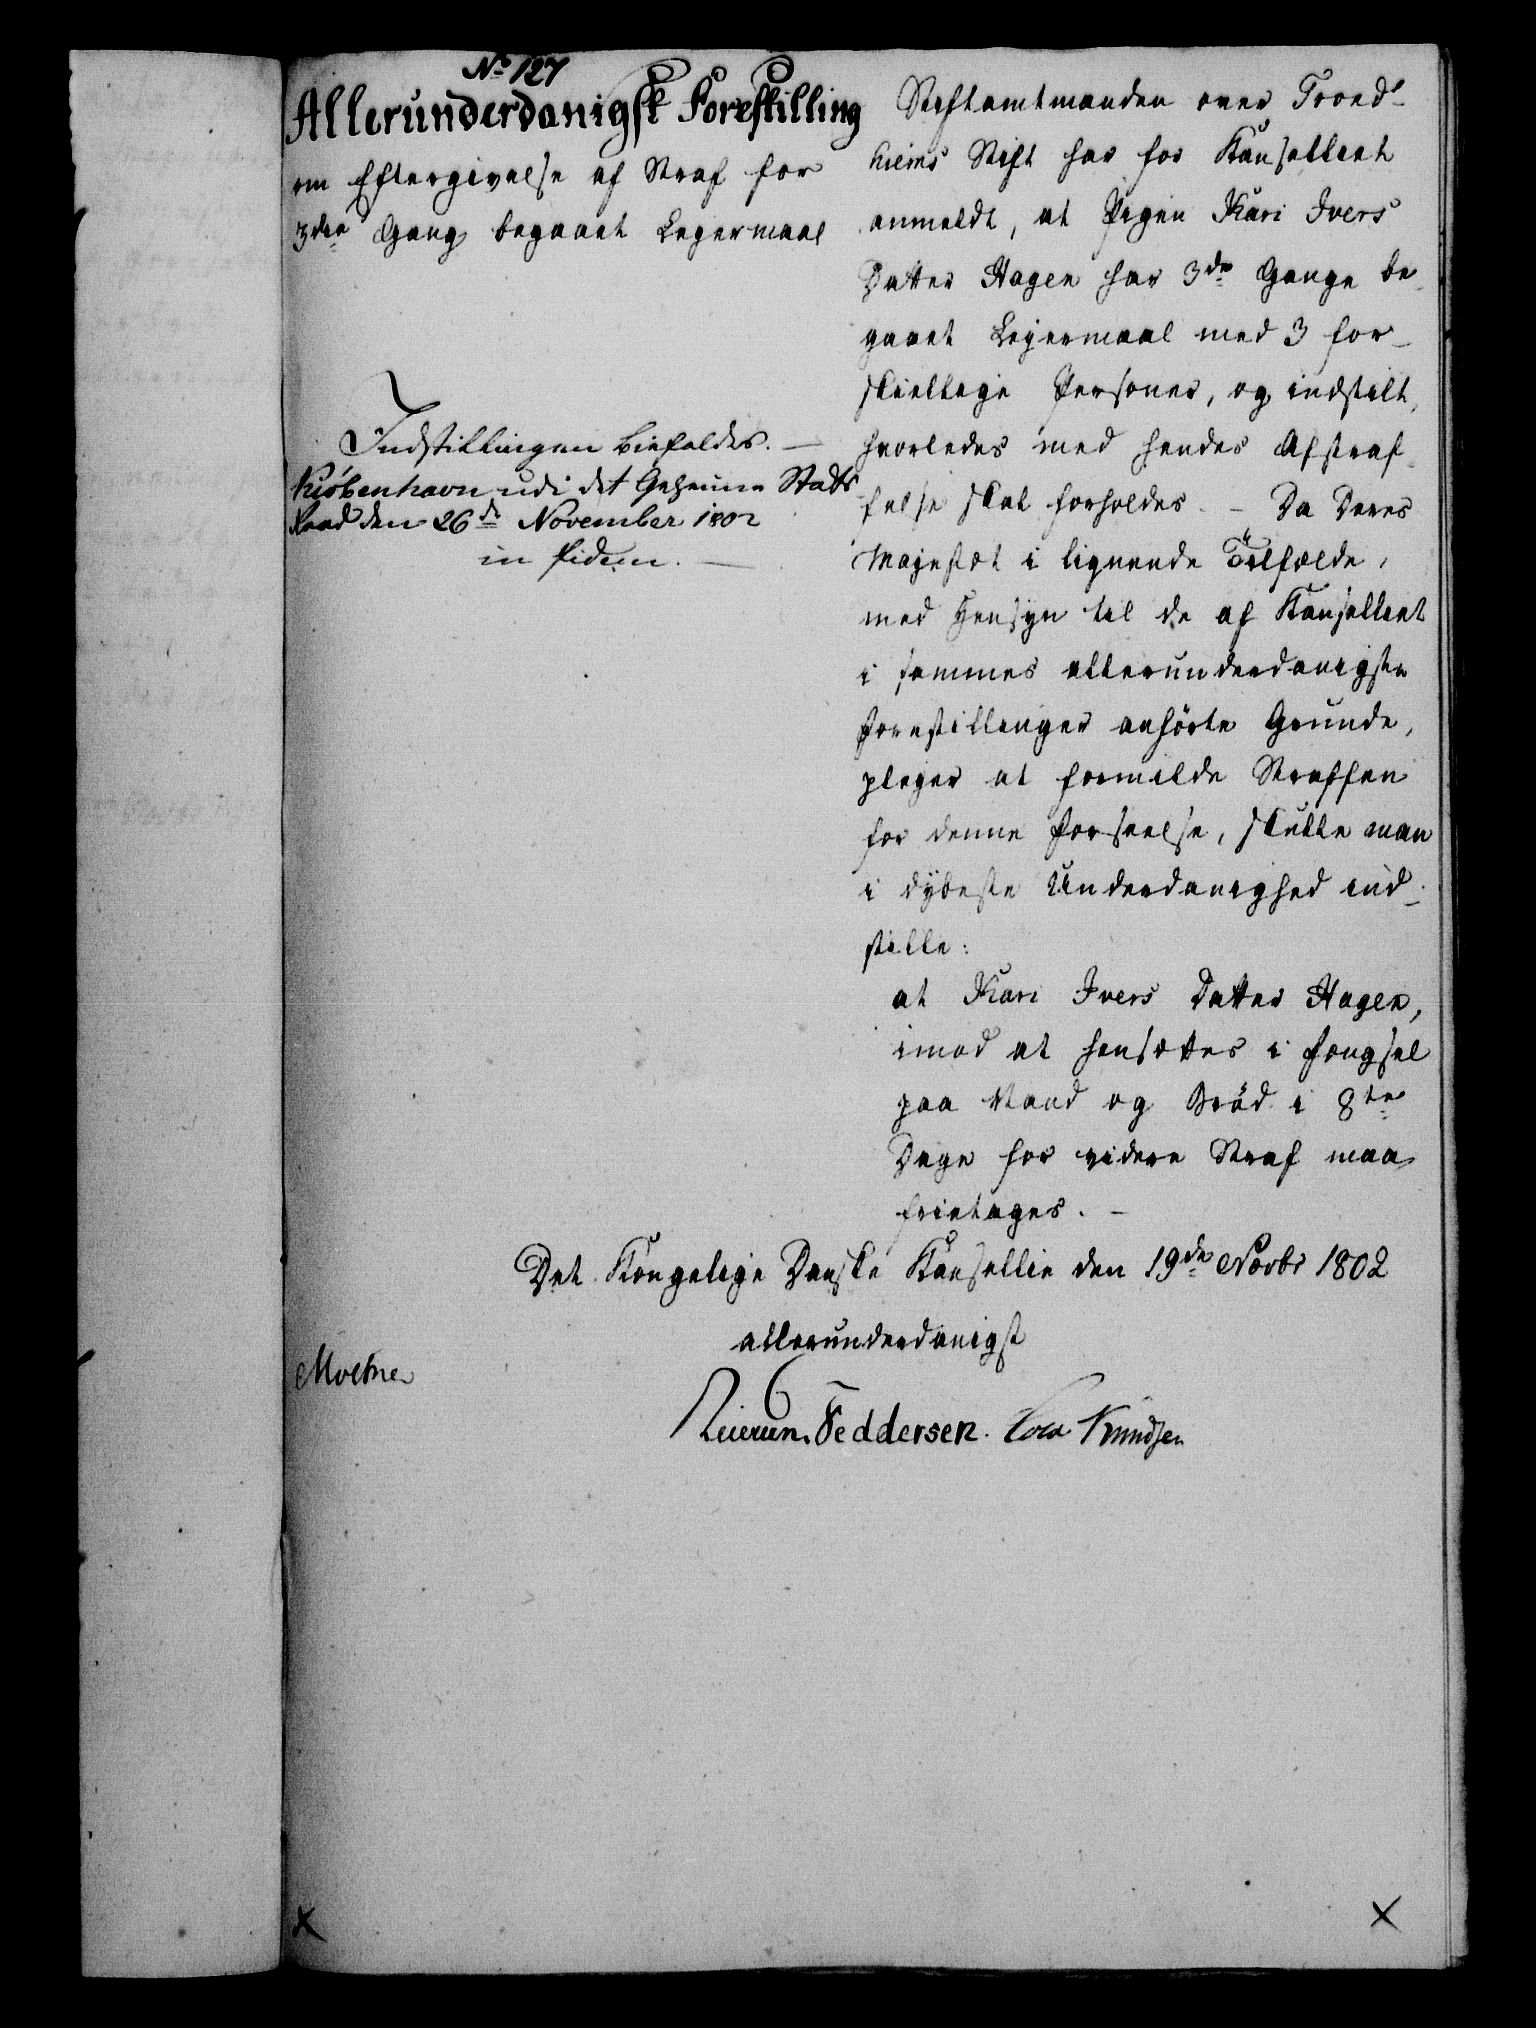 No 127
Allerunderdanigst Forestilling
om Eftergivelse af Straf for
3die Gang begaaet Legermaal
Indstillingen bifaldes. —
Kiøbenhavn udi det Geheime Stats
Raad den 26de November 1802
in fidem. —
Stiftamtmanden over Trond-
hiems Stift har for Kanselliet
anmeldt, at Pigen Kari Ivers
Datter Hagen har 3de Gange be-
gaaet Lejermaal med 3 for-
skiellige Personer, og indstilt,
hvorledes med hendes Afstraf-
felse skal forholdes. – Da Deres
Majestæt i lignende Tilfælde,
med Hensyn til de af Kanselliet
i sammes allerunderdanigste
Forestillinger anførte Grunde,
pleger at formilde Straffen
for denne Forseelse, skulle man
i dybeste Underdanighed ind-
stille:
at Kari Ivers Datter Hagen,
imod at hensættes i Fængsel
paa Vand og Brød i 8te
Dage for videre Straf maa
fritages. –
Det Kongelige Danske Kansellie den 19de Novbr 1802
allerunderdanigst
Moltke
Feddersen. Knudsen